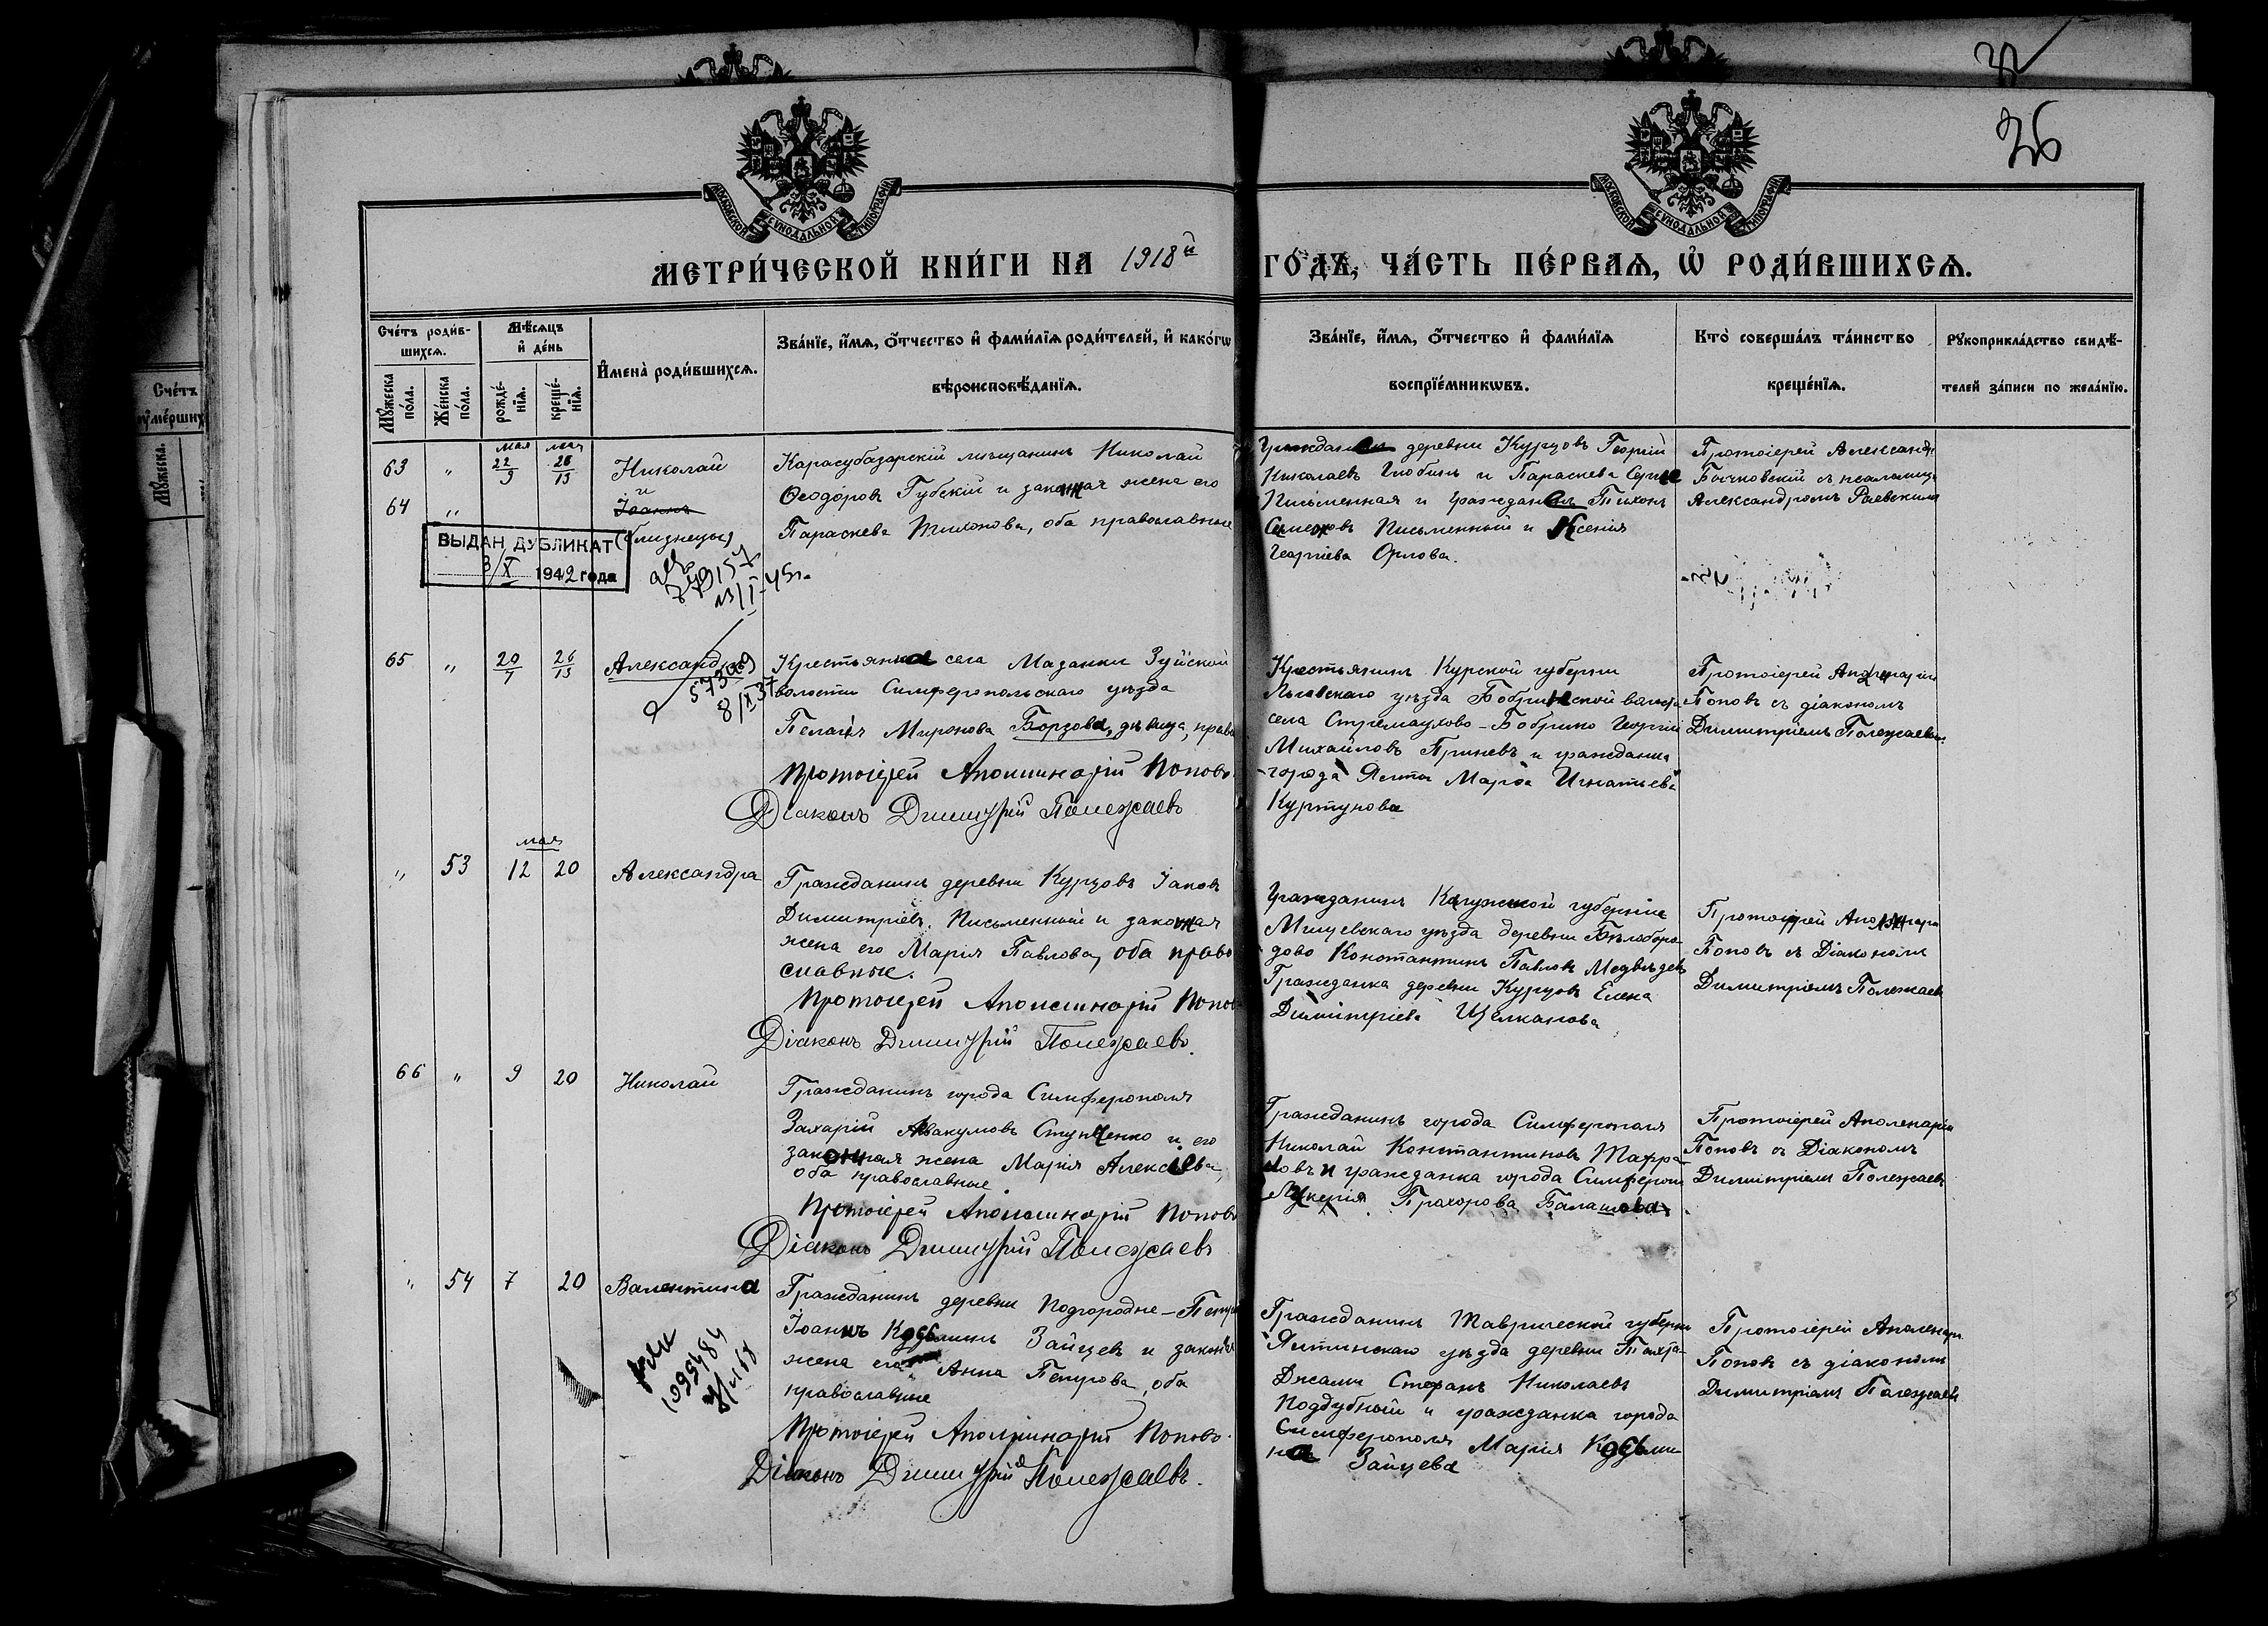 26
МОСКОВСКОЙ СѴНОДАЛЬНОЙ ТИПОГРАФІИ
МОСКОВСКОЙ СѴНОДАЛЬНОЙ ТИПОГРАФІИ
МЕТРИ́ЧЕСКОЙ КНИ́ГИ НА 1918й ГО́ДЪ, ЧА́СТЬ ПЕ́РВАѦ, Ѡ҆ РОДИ́ВШИХСѦ.
Сче́тъ роди́в-
шихсѧ.
Мꙋ́жеска по́ла.
Же́нска по́ла.
Мѣ́сѧцъ
и҆ де́нь
рожде́-
нїѧ.
креще́-
нїѧ.
И҆мена̀ роди́вшихсѧ.
Зва́нїе, и҆́мѧ, ѻ҆́тчество и҆ фами́лїѧ роди́телей, и҆ како́гѡ
вѣроисповѣ́данїѧ.
Зва́нїе, и҆́мѧ, ѻ҆́тчество и҆ фами́лїѧ
воспрїе́мникѡвъ.
Кто̀ соверша́лъ та́инство
креще́нїѧ.
Рꙋкоприкла́дство свидѣ́-
телей за́писи по жела́нїю.
Сче́тъ
Мꙋ́жеска
63 " мая 22/9 мая 28/15 Николай
и
64 " Іоаннъ
(близнецы)
ВЫДАН ДУБЛИКАТ
3/X 1942 года
Карасубазарскій мѣщанинъ Николай
Ѳеодоровъ Губскій и законная жена его
Параскева Тихонова, оба православные
деревни Курцовъ Георгій
Николаевъ и Параскева
Письменная и Тихонъ
Письменный и Ксенія
Георгіева Орлова.
Протоіерей Александръ
съ псаломщ.
Александромъ Раевскимъ
65 " 20/7 26/13 Александръ
8/XI 37
Крестьянка села Мазанки Зуйской
волости Симферопольскаго уѣзда
Пелагія Миронова Борзова, дѣвица, правос
Протоіерей Аполлинарій Поповъ
Діаконъ Димитрій Полежаевъ
Крестьянинъ Курской губерніи
Льговскаго уѣзда волости
села Бобрино Георгій
Михайловъ и гражданка
города Ялты Марѳа Игнатьева
Куртунова
Протоіерей Аполинарій
Поповъ съ діакономъ
Димитріемъ Полежаевымъ
" 53 мая 12 20 Александра
Гражданинъ деревни Курцовъ Іаковъ
Димитріевъ Письменный и законная
жена его Марія Павлова, оба право
славные.
Протоіерей Аполлинарій Поповъ
Діаконъ Димитрій Полежаевъ.
Гражданинъ Калужской губерніи
уѣзда деревни Бѣлоборо-
дово Константинъ Павловъ Медвѣдевъ
Гражданка деревни Курцовъ Елена
Димитріева Щелканова
Протоіерей Аполинарій
Поповъ съ Діакономъ
Димитріемъ Полежаев
66 " 9 20 Николай
Гражданинъ города Симферополя
Захарій Аввакумовъ Ступченко и его
законная жена Марія Алексѣева,
оба православные.
Протоіерей Аполлинарій Поповъ
Діаконъ Димитрій Полежаевъ
Гражданинъ города Симферополя
Николай Константиновъ
и гражданка города Симфероп
Лукерія Прохорова Балашова.
Протоіерей Аполенарій
Поповъ съ Діакономъ
Димитріемъ Полежаевъ
" 54 7 20 Валентина
Гражданинъ деревни Подгородне-Петров
Іоаннъ Зайцевъ и законная
жена его Анна Петрова, оба
православные
Протоіерей Аполлинарій Поповъ.
Діаконъ Димитрій Полежаевъ.
Гражданинъ Таврической губерніи
Ялтинскаго уѣзда деревни
Джами Стефанъ Николаевъ
Поддубный и гражданка города
Симферополя Марія
на Зайцева
Протоіерей Аполенарі
Поповъ съ діакономъ
Димитріемъ Полежаевъ